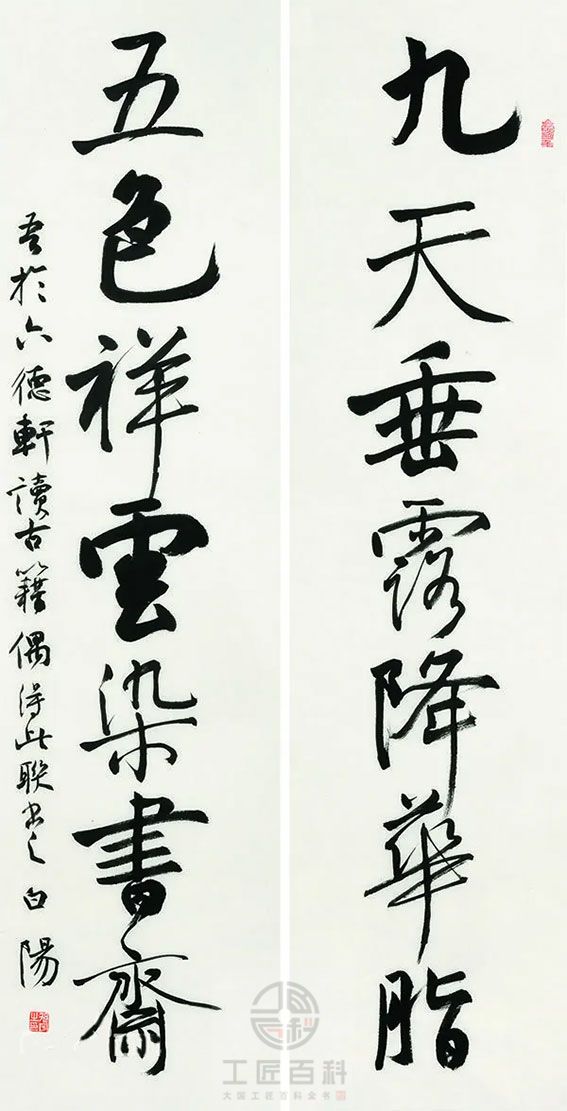 九天垂露降華脂
五色祥雲染書齋
吾於六德軒讀古籍偶得此聯書之 白陽
工匠百科
大国工匠百科全书